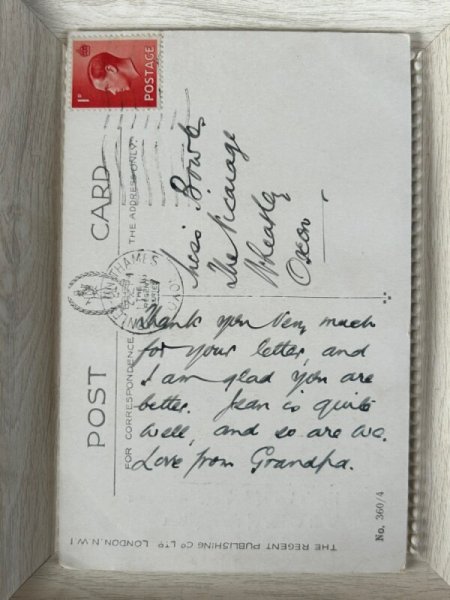 POST CARD
FOR CORRESPONDENCE
THE ADDRESS ONLY.
1D
POSTAGE
THAMES
OXON
Miss
The Vicarage
Wheatley
Oxon
Thank you very much
for your letter, and
I am glad you are
better. Jean is quite
well, and so are we.
Love from Grandpa.
THE REGENT PUBLISHING CO LTD LONDON. N.W 1
No. 360/4